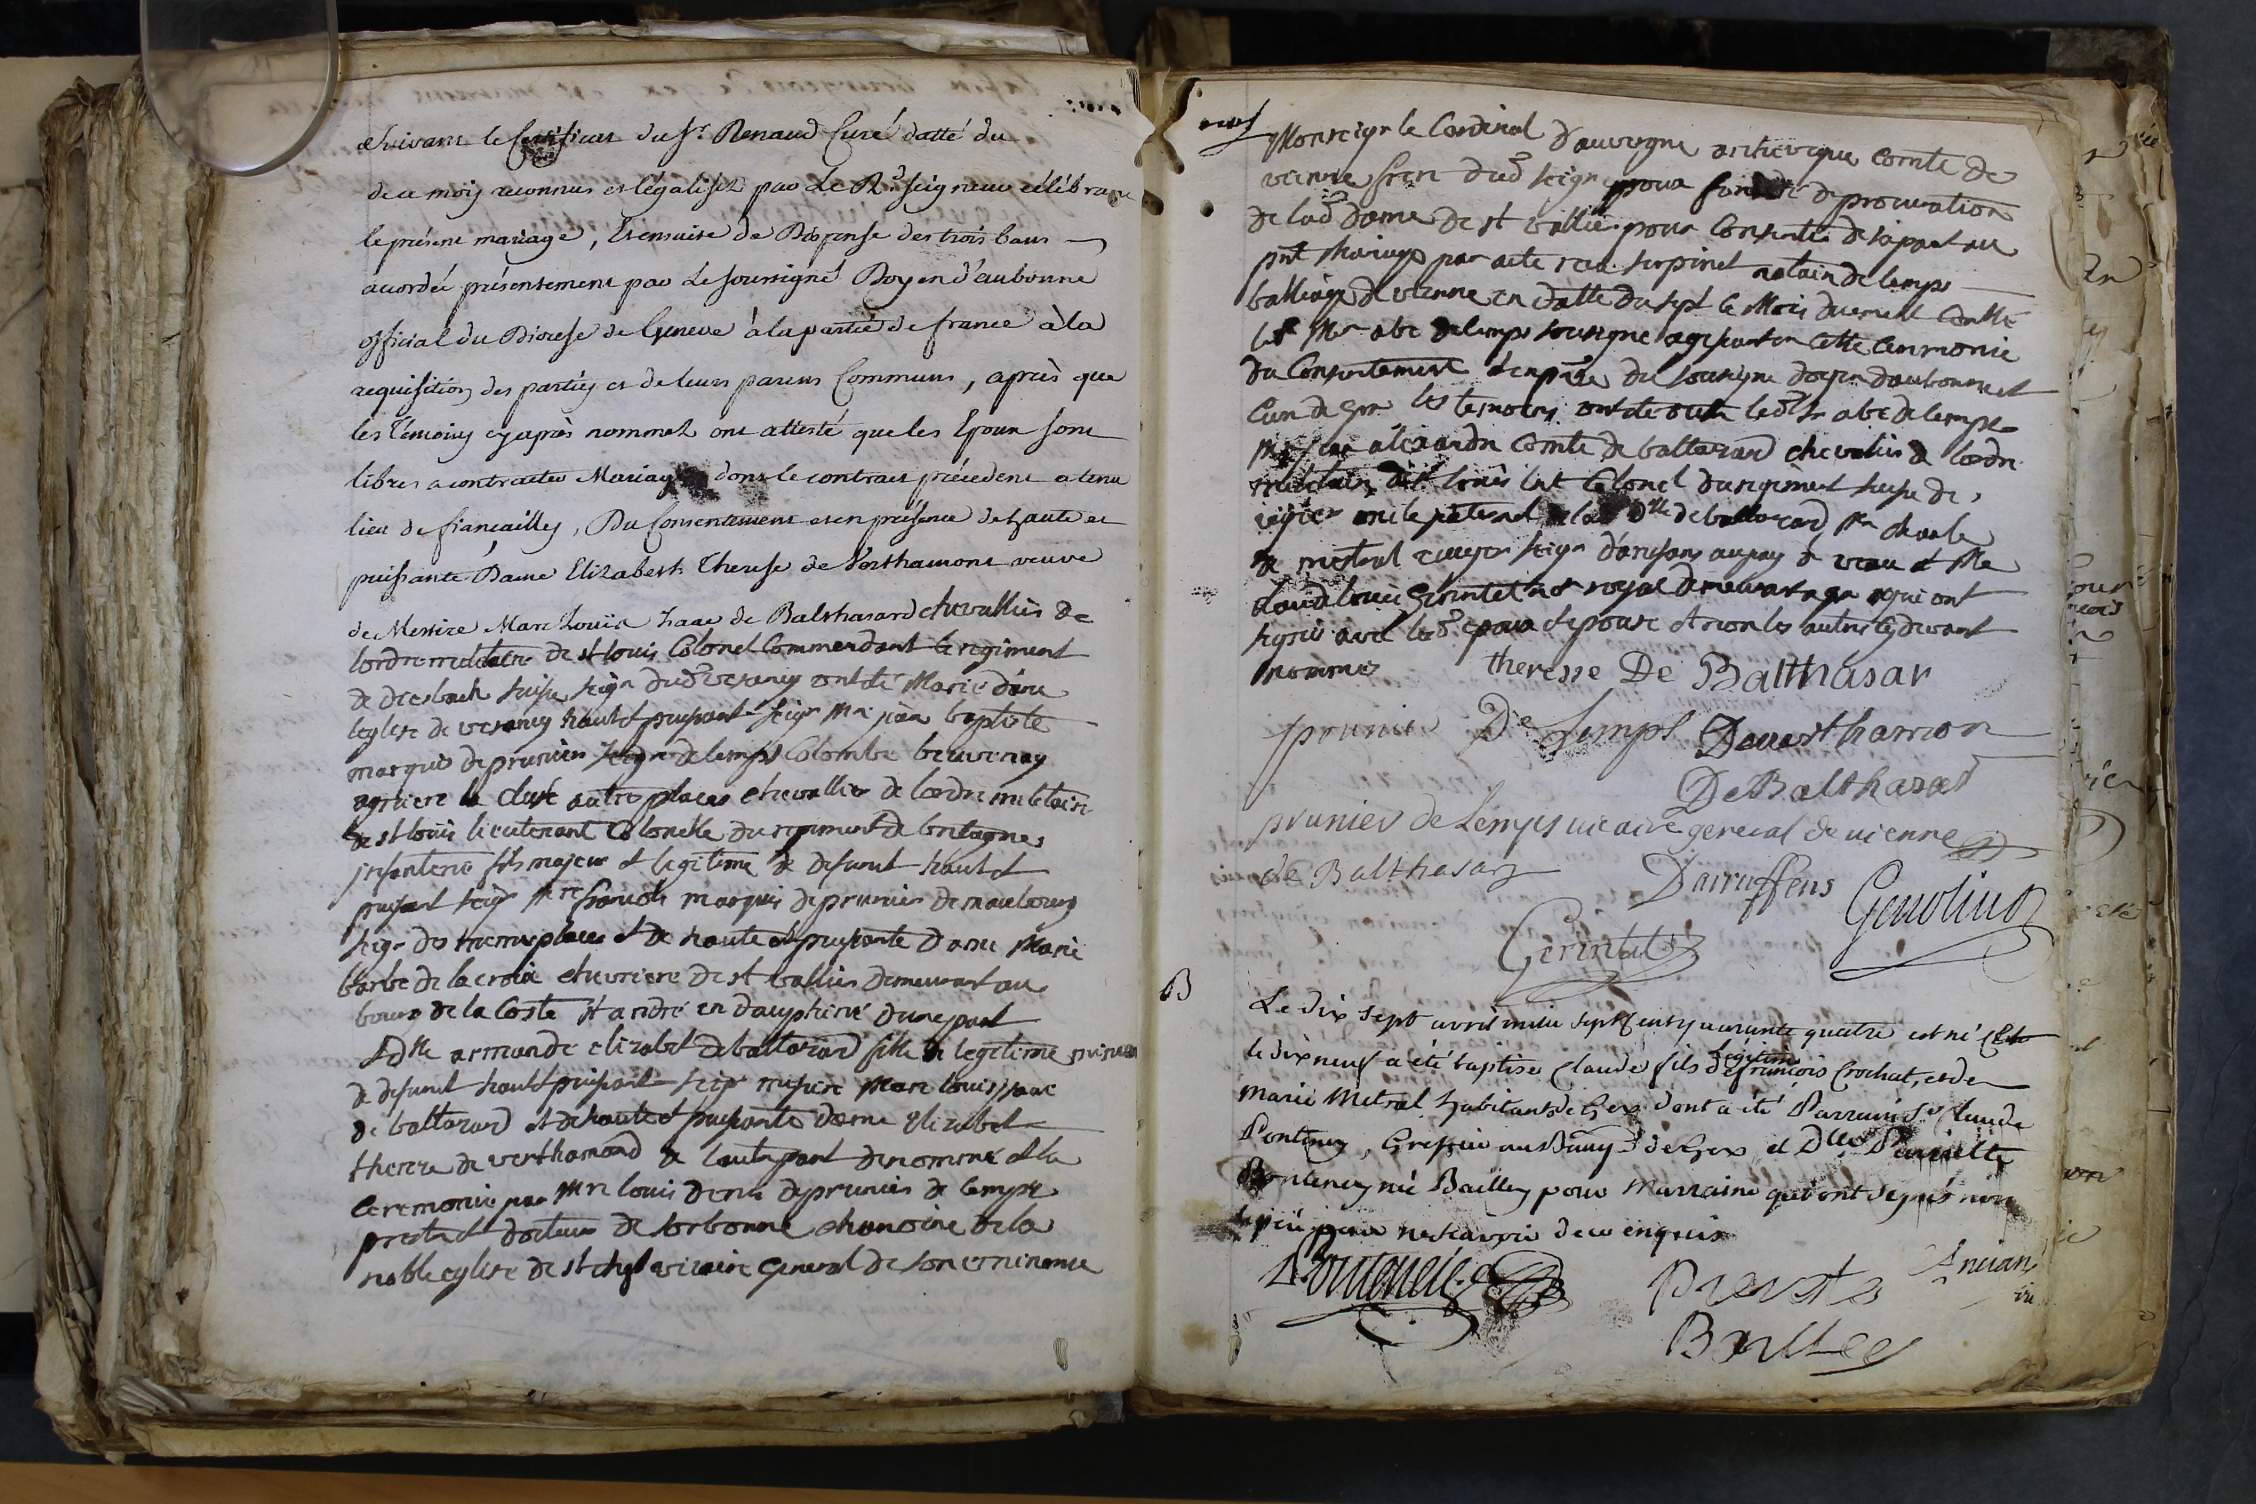 suivant le Certificat du Sr. Renaud Curé datté du
de ce mois reconnus et légalisés par Le Rd. seigneur célébrant
le présent mariage, Et ensuite de Dispense des trois bans
accordée présentement par Le soussigné Doyen d'aubonne
official du Diocese de Geneve à la partie de france à la
requisition des parties et de leurs parens Communs, après que
les Témoins cy après nommez ont attesté que les Epoux sont
libres a contracter Mariage dont le contract précedent a tenu
lieu de fiançailles, Du Consentement et en présence de haute et
puissante Dame Elizabeth Therese de Verthamont veuve
de Messire Marc Louis Isaac de Balthasard chevallier de
lordre militaire de st louis Colonel Commendant le regiment
de diesbach suisse seigr dud. vesancy ont été Marié dans
leglise de vesancy haut et puissant seigr Mre jean baptiste
marquis de prunier seigr de lemps Colombe beauvenay
agniere la cluse autre places chevallier de lordre militaire
de st louis lieutenant Colonelle du regiment de bretagne
infanterie fils majeur et legitime de defunt haut et
puissant seigr Mre francois marquis de prunier de maubourg
seigr des memes places et de haute et puissante dame Marie
barbe de la croix chevriere de st vallier demeurant au
bourg de la Coste st andré en dauphiné dune part
Et Dlle armande elizabet de baltazard fille legitime mineure
de defunt haut et puissant seigr messire Marc louis isaac
de baltazard et de haute et puissante dame Elizabet
therese de verthamond de lautre part denommé et la
Ceremonie par Mre louis denis de prunier de lemps
pretre et docteur de sorbonne chanoine de la
noble eglise de st chef vicaire general de son eminence
Monseigr le Cardinal d'auvergne archeveque comte de
vienne frere dud. seigr epoux fondé de procuration
de lad. dame de st vallier pour Consentir de sa part au
pnt Mariage par acte recu serpinet notaire de lemps
balliage de vienne en datte du sept ce Mois duement Conllé
led. Mr abé de lemps sousigné agissant en cette Ceremonie
du Consentement et en pnce du sousigné doyen daubonne et
Curé de Gex les temoins ont été outre led. Sr abé de lemps
Messire alexandre comte de baltazard chevalier de lordre
militaire de st louis lnt Colonel du regiment suisse de
vigier oncle paternel de lad. Dlle de baltazard, Mr charle
de mestral ecuyer seigr d'aruffens au pays de vaux et Me
claude louis Gerintet not royal demeurant a gex qui ont
signé avec lesd. epoux et epouse et non les autres cy devant
nommés
theresse De Balthasar
prunier De Lemps Deverthamon
De Balthasar
prunier de Lemps vicaire general de vienne
de Balthasar Daruffens
Gerintet
B
Le dix sept avril mille sept Cent quarante quatre est né Et
le dixneuf a été baptisé Claude fils légitime de francois Crochat, et de
Marie Metral habitants de Gex dont a été Parrain Sr Claude
Pontenay, Greffier au de Gex et Dlle
née Bailly pour Marraine qui ont signés non
le pere pour ne scavoir de ce enquis
Bailley